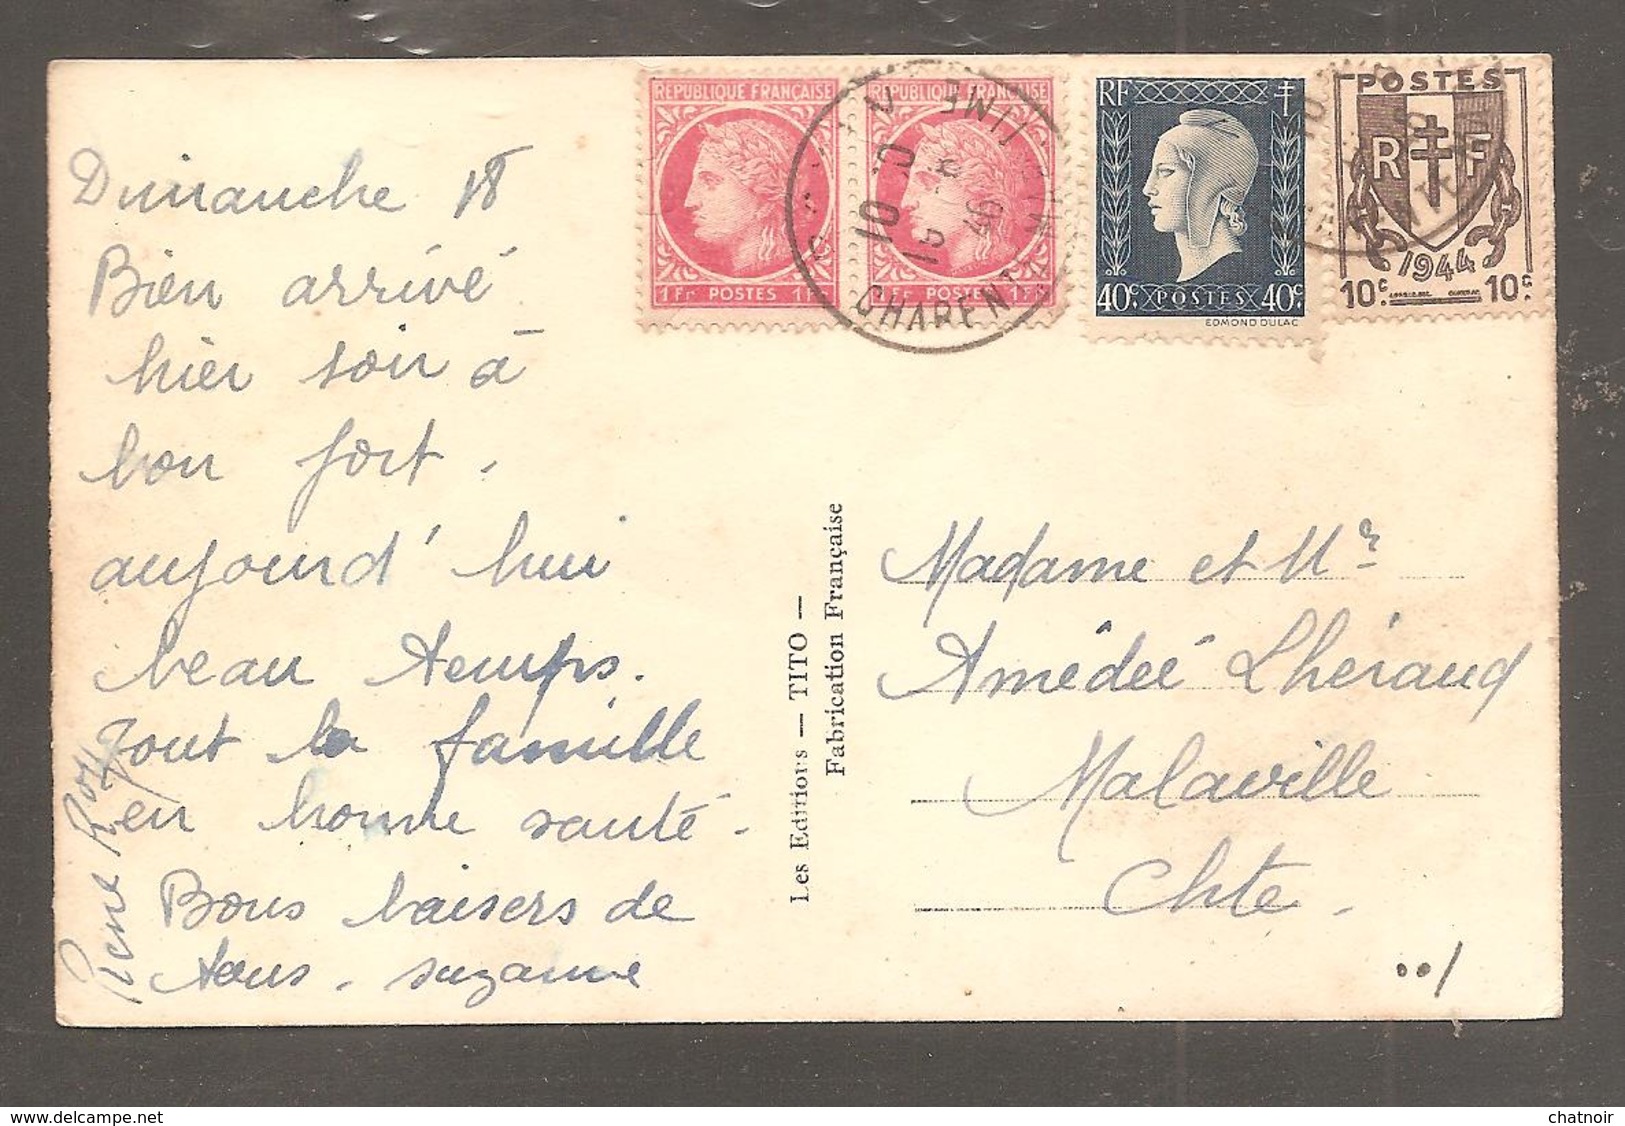 Dimanche 18
Bien arrivé
hier soir à
bon port.
aujourd'hui
beau temps.
Tout la famille
en bonne santé.
Bons baisers de
tous. suzanne
Pierre Roy
Les Editions — TITO —
Fabrication Française
REPUBLIQUE FRANÇAISE
1 Fr POSTES 1 Fr
REPUBLIQUE FRANÇAISE
1 Fr POSTES 1 Fr
CHARENTE
RF
40c POSTES 40c
EDMOND DULAC
POSTES
R F
1944
10c 10c
Madame et Mr
Amédée Lhéraud
Malaville
Chte.
chatnoir